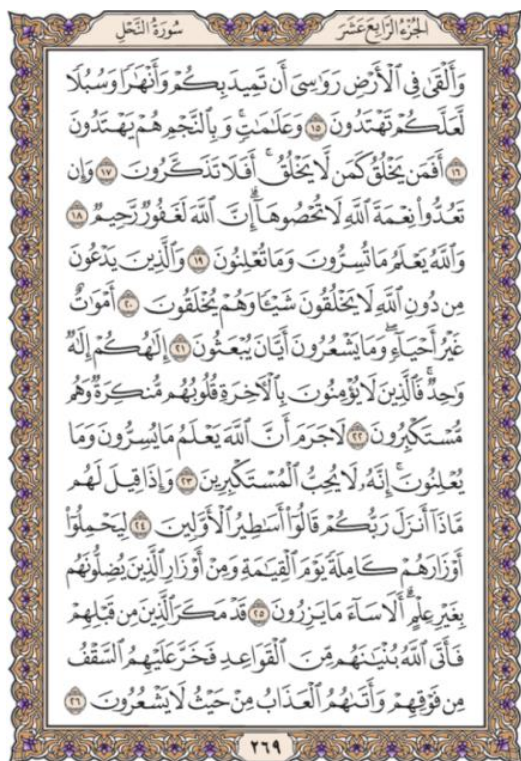 الجُزْءُ الرَّابِعَ عَشَرَ سُورَةُ النَّحْلِ
وَأَلْقَىٰ فِي ٱلْأَرْضِ رَوَٰسِيَ أَن تَمِيدَ بِكُمْ وَأَنْهَٰرًا وَسُبُلًا
لَّعَلَّكُمْ تَهْتَدُونَ ١٥ وَعَلَٰمَٰتٍۚ وَبِٱلنَّجْمِ هُمْ يَهْتَدُونَ
١٦ أَفَمَن يَخْلُقُ كَمَن لَّا يَخْلُقُۚ أَفَلَا تَذَكَّرُونَ ١٧ وَإِن
تَعُدُّوا۟ نِعْمَةَ ٱللَّهِ لَا تُحْصُوهَآۗ إِنَّ ٱللَّهَ لَغَفُورٌ رَّحِيمٌ ١٨
وَٱللَّهُ يَعْلَمُ مَا تُسِرُّونَ وَمَا تُعْلِنُونَ ١٩ وَٱلَّذِينَ يَدْعُونَ
مِن دُونِ ٱللَّهِ لَا يَخْلُقُونَ شَيْـًٔا وَهُمْ يُخْلَقُونَ ٢٠ أَمْوَٰتٌ
غَيْرُ أَحْيَآءٍۖ وَمَا يَشْعُرُونَ أَيَّانَ يُبْعَثُونَ ٢١ إِلَٰهُكُمْ إِلَٰهٌ
وَٰحِدٌۚ فَٱلَّذِينَ لَا يُؤْمِنُونَ بِٱلْءَاخِرَةِ قُلُوبُهُم مُّنكِرَةٌ وَهُم
مُّسْتَكْبِرُونَ ٢٢ لَا جَرَمَ أَنَّ ٱللَّهَ يَعْلَمُ مَا يُسِرُّونَ وَمَا
يُعْلِنُونَۚ إِنَّهُۥ لَا يُحِبُّ ٱلْمُسْتَكْبِرِينَ ٢٣ وَإِذَا قِيلَ لَهُم
مَّاذَآ أَنزَلَ رَبُّكُمْ قَالُوٓا۟ أَسَٰطِيرُ ٱلْأَوَّلِينَ ٢٤ لِيَحْمِلُوٓا۟
أَوْزَارَهُمْ كَامِلَةً يَوْمَ ٱلْقِيَٰمَةِ وَمِنْ أَوْزَارِ ٱلَّذِينَ يُضِلُّونَهُم
بِغَيْرِ عِلْمٍۗ أَلَا سَآءَ مَا يَزِرُونَ ٢٥ قَدْ مَكَرَ ٱلَّذِينَ مِن قَبْلِهِمْ
فَأَتَى ٱللَّهُ بُنْيَٰنَهُم مِّنَ ٱلْقَوَاعِدِ فَخَرَّ عَلَيْهِمُ ٱلسَّقْفُ
مِن فَوْقِهِمْ وَأَتَىٰهُمُ ٱلْعَذَابُ مِنْ حَيْثُ لَا يَشْعُرُونَ ٢٦
٢٦٩